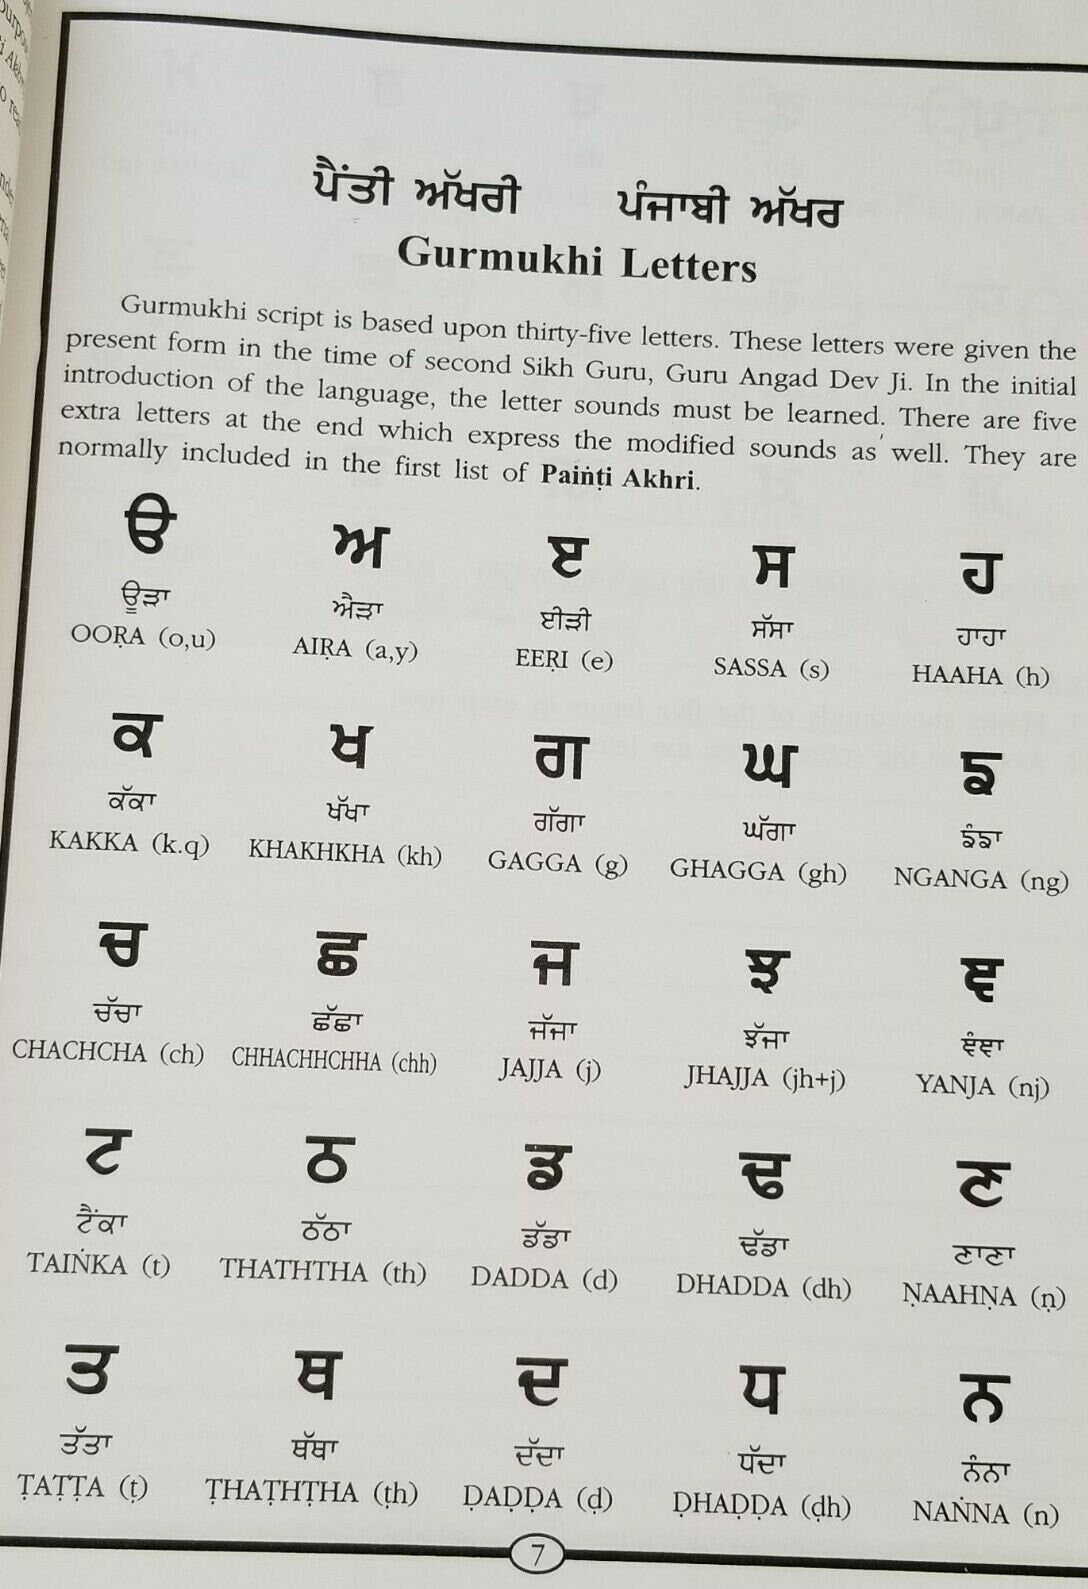 ਪੈਂਤੀ ਅੱਖਰੀ ਪੰਜਾਬੀ ਅੱਖਰ
Gurmukhi Letters
Gurmukhi script is based upon thirty-five letters. These letters were given the
present form in the time of second Sikh Guru, Guru Angad Dev Ji. In the initial
introduction of the language, the letter sounds must be learned. There are five
extra letters at the end which express the modified sounds as well. They are
normally included in the first list of Painṫi Akhri.
ੳ ਅ ੲ ਸ ਹ
ਊੜਾ ਐੜਾ ਈੜੀ ਸੱਸਾ ਹਾਹਾ
OOṚA (o,u) AIṚA (a,y) EEṚI (e) SASSA (s) HAAHA (h)
ਕ ਖ ਗ ਘ ਙ
ਕੱਕਾ ਖੱਖਾ ਗੱਗਾ ਘੱਗਾ ਙੰਙਾ
KAKKA (k.q) KHAKHKHA (kh) GAGGA (g) GHAGGA (gh) NGANGA (ng)
ਚ ਛ ਜ ਝ ਞ
ਚੱਚਾ ਛੱਛਾ ਜੱਜਾ ਝੱਜਾ ਞੰਞਾ
CHACHCHA (ch) CHHACHHCHHA (chh) JAJJA (j) JHAJJA (jh+j) YANJA (nj)
ਟ ਠ ਡ ਢ ਣ
ਟੈਂਕਾ ਠੱਠਾ ਡੱਡਾ ਢੱਡਾ ਣਾਣਾ
TAIṄKA (t) THATHTHA (th) DADDA (d) DHADDA (dh) ṆAAHṆA (ṇ)
ਤ ਥ ਦ ਧ ਨ
ਤੱਤਾ ਥੱਥਾ ਦੱਦਾ ਧੱਦਾ ਨੰਨਾ
ṬAṬṬA (ṭ) ṬHAṬHṬHA (ṭh) ḌAḌḌA (ḍ) ḌHAḌḌA (ḍh) NAṄNA (n)
7